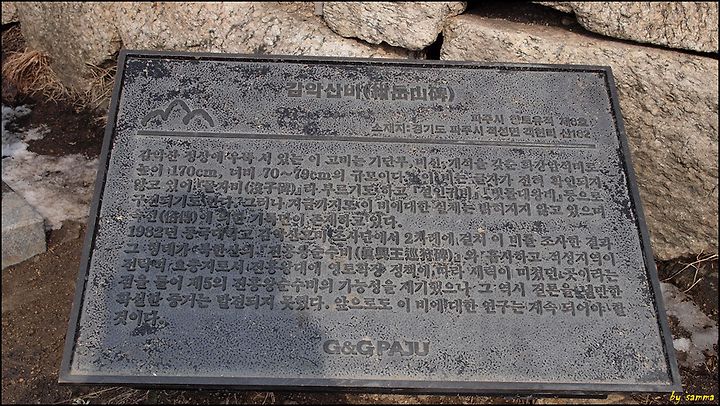 감악산비(紺岳山碑)
파주시 향토유적 제8호
소재지:경기도 파주시 적성면 객현리 산162
감악산 정상에 우뚝 서 있는 이 고비는 기단부, 비신, 개석을 갖춘 화강암석비로
높이 170cm, 너비 70~79cm의 규모이다. 이 비는 글자가 전혀 확인되지
않고 있어 『몰자비(沒字碑)』라 부르기도 하고 『설인귀비』, 『빗돌대왕비』 등으로
구전되기도 한다. 그러나 지금까지도 이 비에대한 실체는 밝혀지지 않고 있으며
속전(俗傳)에 의한 기록만이 존재하고 있다.
1982년 동국대학교 감악산고비 조사단에서 2차례에 걸쳐 이 비를 조사한 결과
그 형태가 북한산의 『진흥왕순수비(眞興王巡狩碑)』와 흡사하고 적성지역이
전략적 요충지로서 진흥왕대에 영토확장 정책에 따라 세력이 미쳤던 곳이라는
점을 들어 제5의 진흥왕순수비의 가능성을 제기했으나 그 역시 결론을 낼만한
확실한 증거는 발견되지 못했다. 앞으로도 이 비에 대한 연구는 계속 되어야 할
것이다.
G&G PAJU
by samma